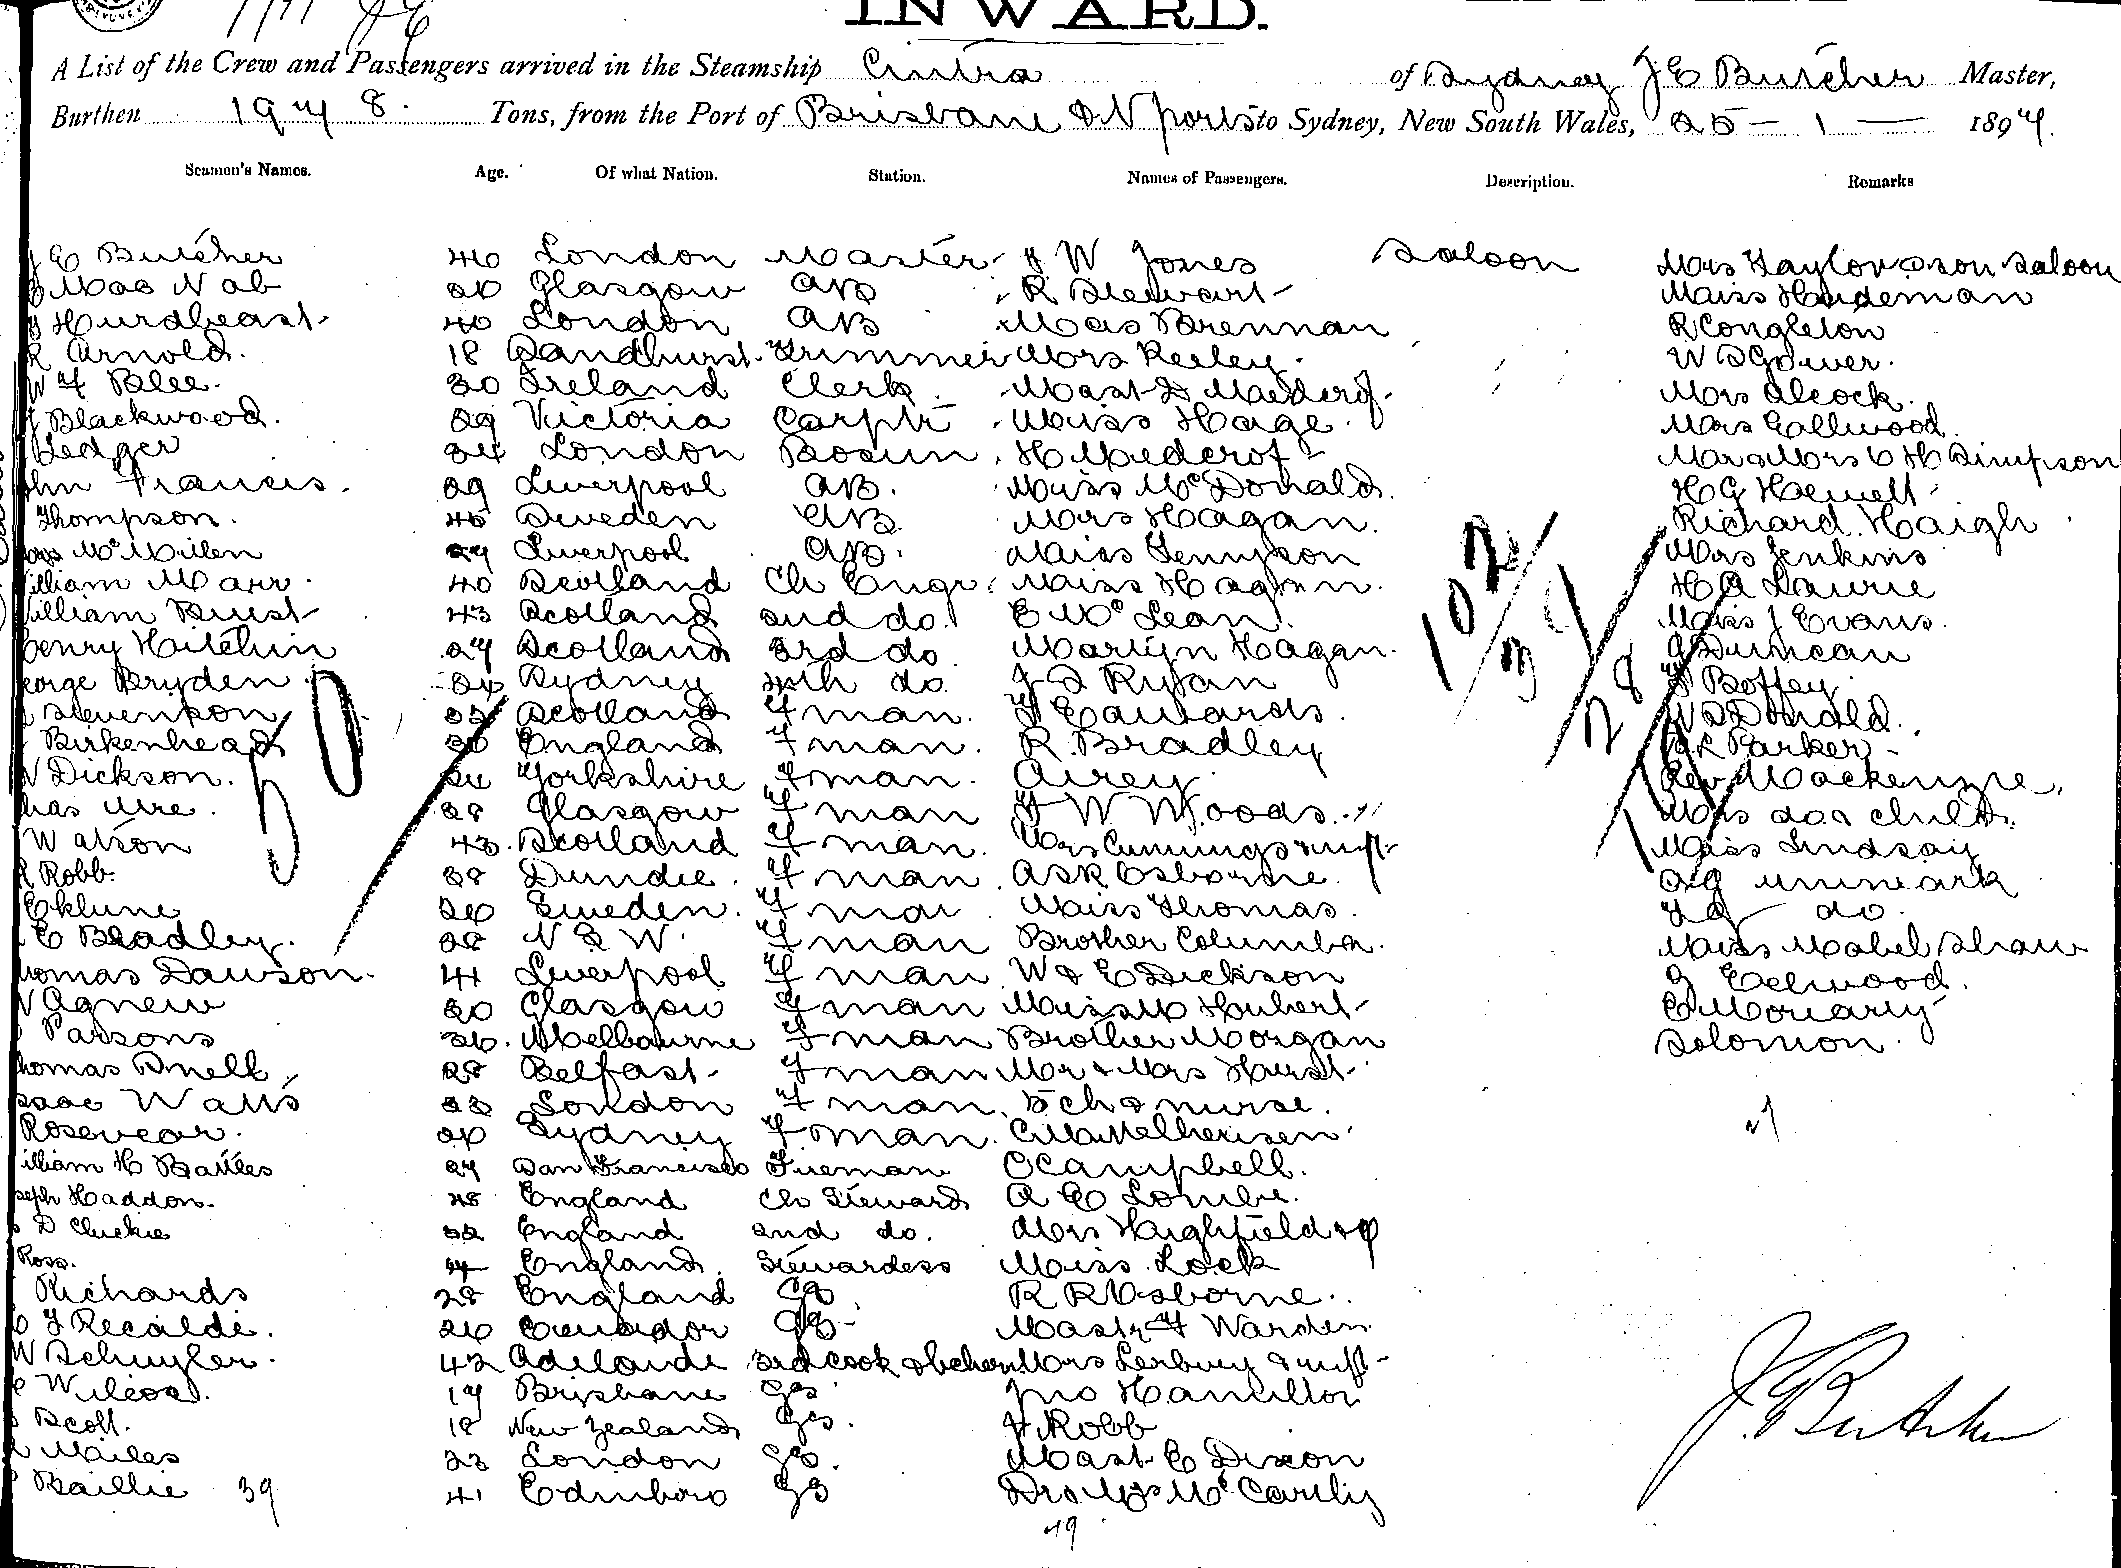 INWARD.
A List of the Crew and Passengers arrived in the Steamship Cintra of Sydney J E Butcher Master,
Burthen 1979 8. Tons, from the Port of Brisbane & N ports to Sydney, New South Wales, 25 - 1 - 1897.
Seamen's Names. Age. Of what Nation. Station. Names of Passengers. Description. Remarks
J E Butcher 46 London Master J W Jones Saloon Mrs Taylor & son Saloon
Mac Nab 26 Glasgow AB R Stewart Miss Hindeman
Hurdheast 40 London AB Miss Brennan R Congleton
R Arnold. 18 Sandhurst Trimmer Mrs Keeley. W S Gower.
W F Blee. 30 Ireland Clerk Mast D Medcrof. Mrs Alcock.
J Blackwood. 29 Victoria Carptr Miss Hage. Mrs Eallwood
Ledger 34 London Bosun H Medcrof Mr & Mrs C H Simpson
John Francis. 29 Liverpool AB. Miss McDonald. H G Hewett
Thompson. 45 Sweden AB. Mrs Hagan. Richard Haigh
McMillen 27 Liverpool AB. Miss Tennyson Mrs Jenkins
William Marr. 40 Scotland Ch Engr. Miss Hagan. H A Laurie
William Bust 43 Scotland 2nd do. E McLean. Miss J Evans.
Henry Hitchin 27 Scotland 3rd do. Martyn Hagan. G Duncan
George Bryden 26 Sydney 4th do. J D Ryan Boffey.
Stevenson 32 Scotland Fman. F Edwards. W D Donald.
Birkenhead 30 England Fman. R. Bradley Parker
W Dickson. 24 Yorkshire Fman. Airey. Rev Mackenzie,
Chas Ure. 28 Glasgow Fman F W Woods. Mrs do & child.
Watson 43. Scotland Fman. Mrs Cummings & inft Miss Lindsay
R Robb. 38 Dundee. Fman. A S K Osborne. A G Unmark
Eklune 26 Sweden. Fman Miss Thomas. F G do.
E Bradley. 28 N S W. Fman Brother Columba. Miss Mabel Shaw
Thomas Dawson. 41 Liverpool Fman W & E Dickson G Eelwood.
W Agnew 30 Glasgow Fman Miss M Hubert E Moriarty
Parsons 36. Melbourne Fman Brother Morgan Solomon.
Thomas Snell 28 Belfast Fman Mr & Mrs Hurst
Isaac Watts 33 London Fman. 5 ch & nurse.
Rosevear. 26 Sydney Fman.
William H Battles 27 San Francisco Fireman O Campbell.
Joseph Haddon. 48 England Ch Steward A E Lombe.
D Cluckie 32 England 2nd do. Mrs Highfield & f
Ross. England. Stewardess Miss Lock
Richards 28 England GS R R Osborne.
J Recalde. 26 Ecuador GS Mastr F Warden
W Schuyler. 42 Adelaide 3rd cook & bchr Mrs Lerbury & inft
Wilcox. 17 Brisbane GS Jno Hamilton
Scott. 18 New Zealand GS. J Robb
Miles 23 London GS. Mast E Dixon
Baillie 39 41 Edinboro GS Dr & Mrs McCarthy
49
J. E Butcher